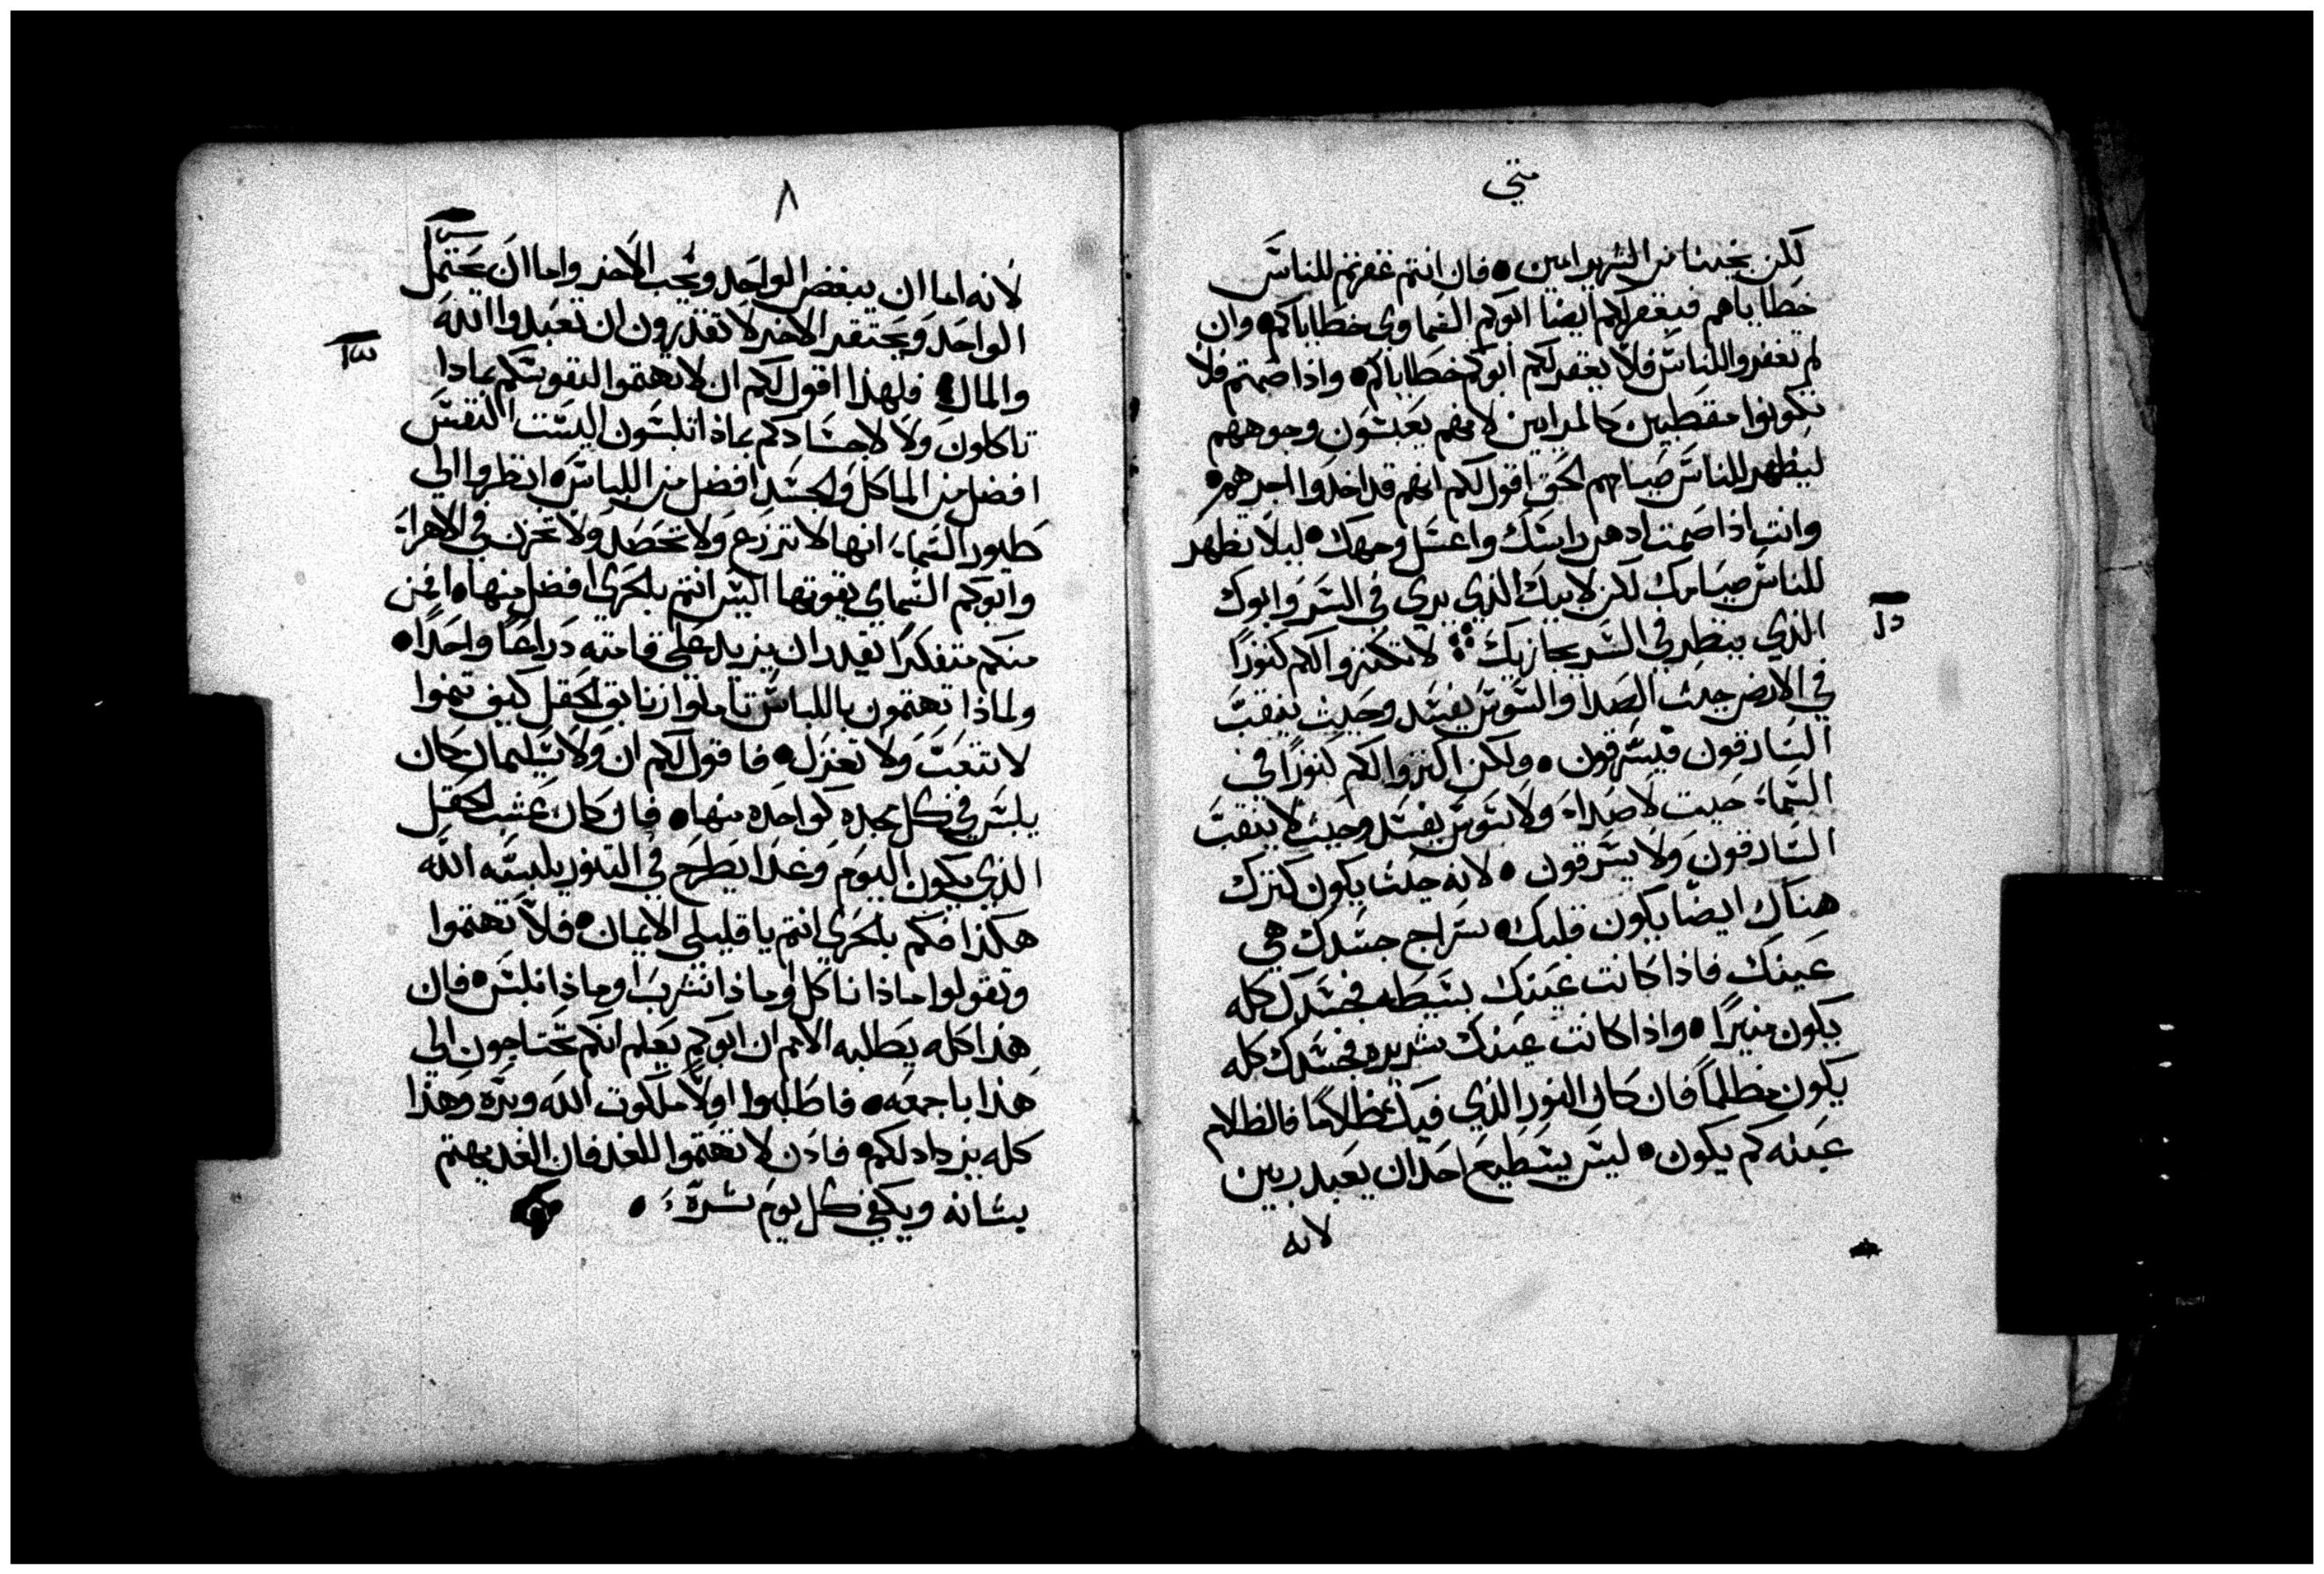 متي
لكن نجينا من الشرير امين • فان انتم غفرتم للناس
خطاياهم فيغفر لكم ايضا ابوكم السماوي خطاياكم • وان
لم تغفروا للناس فلا يغفر لكم ابوكم خطاياكم • واذا صمتم فلا
تكونوا مقطبين كالمرايين لانهم يعبسون وجوههم
ليظهر للناس صيامهم الحق اقول لكم انهم قد اخدوا اجرهم •
وانت اذا صمت ادهن راسك واغسل وجهك • ليلا يظهر
للناس صيامك لكن لابيك الذي يري في السر وابوك
الذي ينظر في السر يجازيك ܀ لا تكنزوا لكم كنوزًا
دا
في الارض حيث الصدا والسوس يفسد وحيث ينقب
السارقون فيسرقون • ولكن اكنزوا لكم كنوزًا في
السماء حيت لا صداء ولا سوس يفسد وحيث لا ينقب
السارقون ولا يسرقون • لانه حيث يكون كنزك
هناك ايضًا يكون قلبك • سراج جسدك هي
عينك فاذا كانت عينك بسيطه فجسدك كله
يكون منيرًا • واذا كانت عينك شريره فجسدك كله
يكون مظلمًا فان كان النور الذي فيك ظلامًا فالظلام
عينه كم يكون • ليس يستطيع احد ان يعبد ربين
لانه
٨
لانه اما ان يبغض الواحد ويحب الاخر واما ان يحتمل
الواحد ويحتقر الاخر لا تقدرون ان تعبدوا الله
والمال • فلهذا اقول لكم ان لا تهتموا لنفوسكم بمادا
تاكلون ولا لاجسادكم بماذا تلبسون اليست النفس
افضل من الماكل والجسد افضل من اللباس • انظروا الي
طيور السماء انها لا تزرع ولا تحصد ولا تخزن في الاهراء
وابوكم السماي يقوتها اليس انتم بالحري افضل منها • فمن
منكم متفكرًا يقدر ان يزيد علي قامته دراعًا واحدًا •
ولماذا تهتمون باللباس تاملوا زنابق الحقل كيف تنموا
لا تتعب ولا تغزل • فاقول لكم ان ولا سليمان كان
يلبس في كل مجده كواحده منها • فان كان عشب الحقل
الذي يكون اليوم وغدًا يطرح في التنور يلبسه الله
هكذا فكم بالحري انتم يا قليلي الايمان • فلا تهتموا
وتقولوا ماذا ناكل او ماذا نشرب او ماذا نلبس • فان
هذا كله يطلبه الامم ان ابوكم يعلم انكم تحتاجون الي
هذا باجمعه • فاطلبوا اولًا ملكوت الله وبره وهذا
كله يزداد لكم • فاذن لا تهتموا للغد فان الغد يهتم
بشانه ويكفي كل يوم شره •